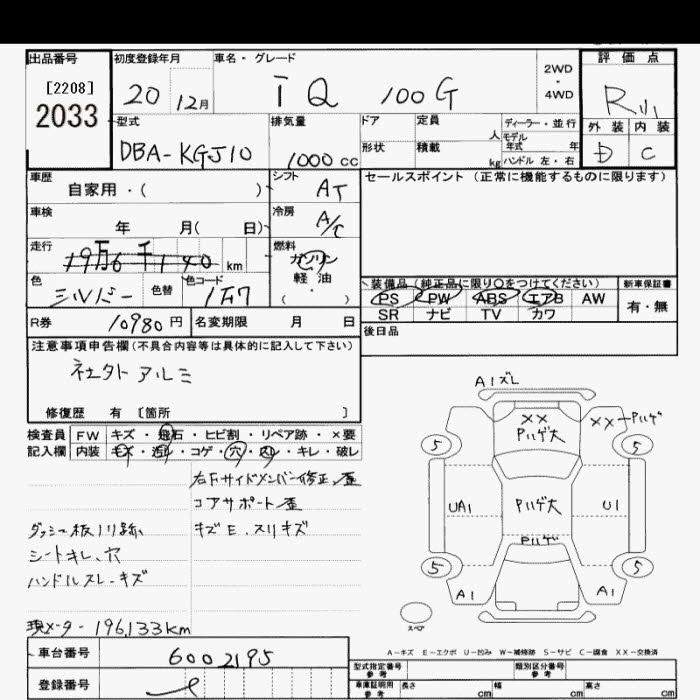 出品番号
[2208]
2033
初度登録年月
20 12月
車名・グレード
IQ 100G
2WD
・
4WD
評価点
R
外装 内装
D C
型式
DBA-KGJ10
排気量
1000 cc
ドア
形状
定員
人
積載
kg
ディーラー・並行
モデル
年式 年
ハンドル 左・右
車歴
自家用・( )
シフト
AT
車検
年 月( 日)
冷房
A/C
走行
19万6千140 km
燃料
ガソリン
軽油
( ・ )
色
シルバー
色替
色コード
1F7
R券
10980円
名変期限 月 日
セールスポイント(正常に機能するものに限ります)
装備品(純正品に限り○をつけてください)
PS PW ABS エアB AW
SR ナビ TV カワ
新車保証書
有・無
後日品
注意事項申告欄(不具合内容等は具体的に記入して下さい)
社外アルミ
修復歴 有 〔箇所 〕
検査員
記入欄
FW キズ・飛石・ヒビ割・リペア跡・×要
内装 キズ・汚レ・コゲ・穴・スレ・キレ・破レ
右Fサイドメンバー修正、歪
コアサポート歪
ダッシュ板ノリ跡
キズE.スリキズ
シートキレ、穴
ハンドルスレ・キズ
現メーター196,133km
A1ズレ
XX
Pハゲ大
XX
Pハゲ
5
5
UA1
Pハゲ大
U1
Pハゲ
5
5
A1
A1
スペア
A-キズ E-エクボ U-凹み W-補修跡 S-サビ C-腐食 XX-交換済
車台番号
6002195
登録番号
型式指定番号
参考
類別区分番号
参考
車庫証明用
参考
長さ cm
幅 cm
高さ cm